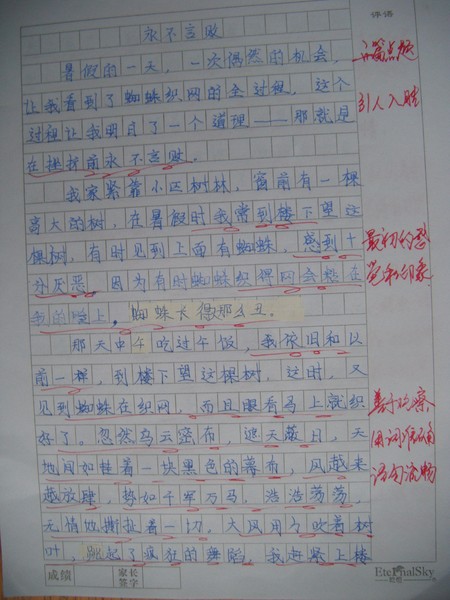 永不言败
评语
暑假的一天，一次偶然的机会，
开篇点题
让我看到了蜘蛛织网的全过程，这个
引人入胜
过程让我明白了一个道理——那就是
在挫折前永不言败。
我家紧靠小区树林，窗前有一棵
高大的树，在暑假时我常到楼下望这
棵树，有时见到上面有蜘蛛，感到十
最初的感
分厌恶。因为有时蜘蛛织得网会想在
觉和印象
我的脸上，蜘蛛长得那么丑。
那天中午吃过午饭，我依旧和以
前一样，到楼下望这棵树。这时，又
见到蜘蛛在织网，而且眼看马上就织
善于观察
好了。忽然乌云密布，遮天蔽日，天
用词准确
地间如挂着一块黑色的幕布，风越来
语句流畅
越放肆，势如千军万马，浩浩荡荡，
无情地撕扯着一切，大风用力吹着树
叶，跳起了疯狂的舞蹈，我赶紧上楼
成绩
家长签字
EternalSky